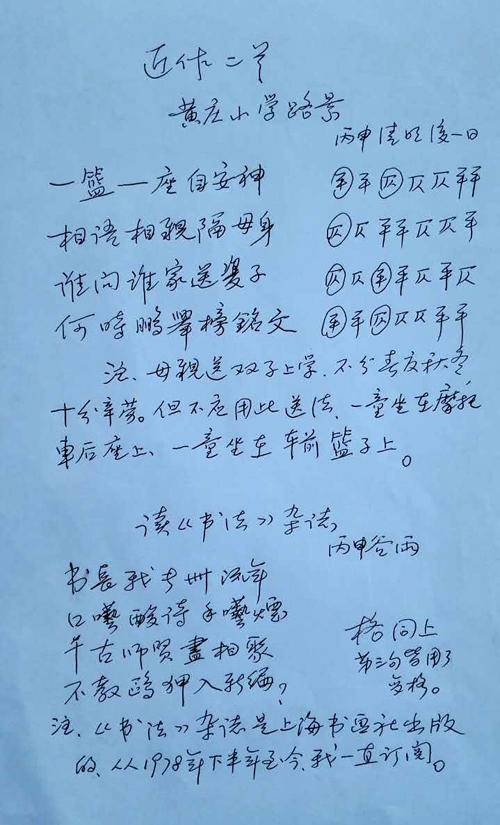 近作二首
黄庄小学路景
丙申清明后一日
一籃一座自安神 平平仄仄仄平平
相语相親隔母身 仄仄平平仄仄平
谁问谁家送雙子 仄仄平平仄平仄
何時鹏舉榜銘文 平平仄仄仄平平
注、母親送双子上学、不分春夏秋冬,
十分辛劳。但不应用此送法、一童坐在摩托
車后座上、一童坐在车前籃子上。
读《书法》杂志
丙申谷雨
书長我卅流年
口嚷酸诗手嚷煙
千古师贤盡相聚
不教鷗狎入新编
格同上
第三句皆用了
变格。
注、《书法》杂志是上海书画社出版
的、从1978年下半年至今、我一直订阅。